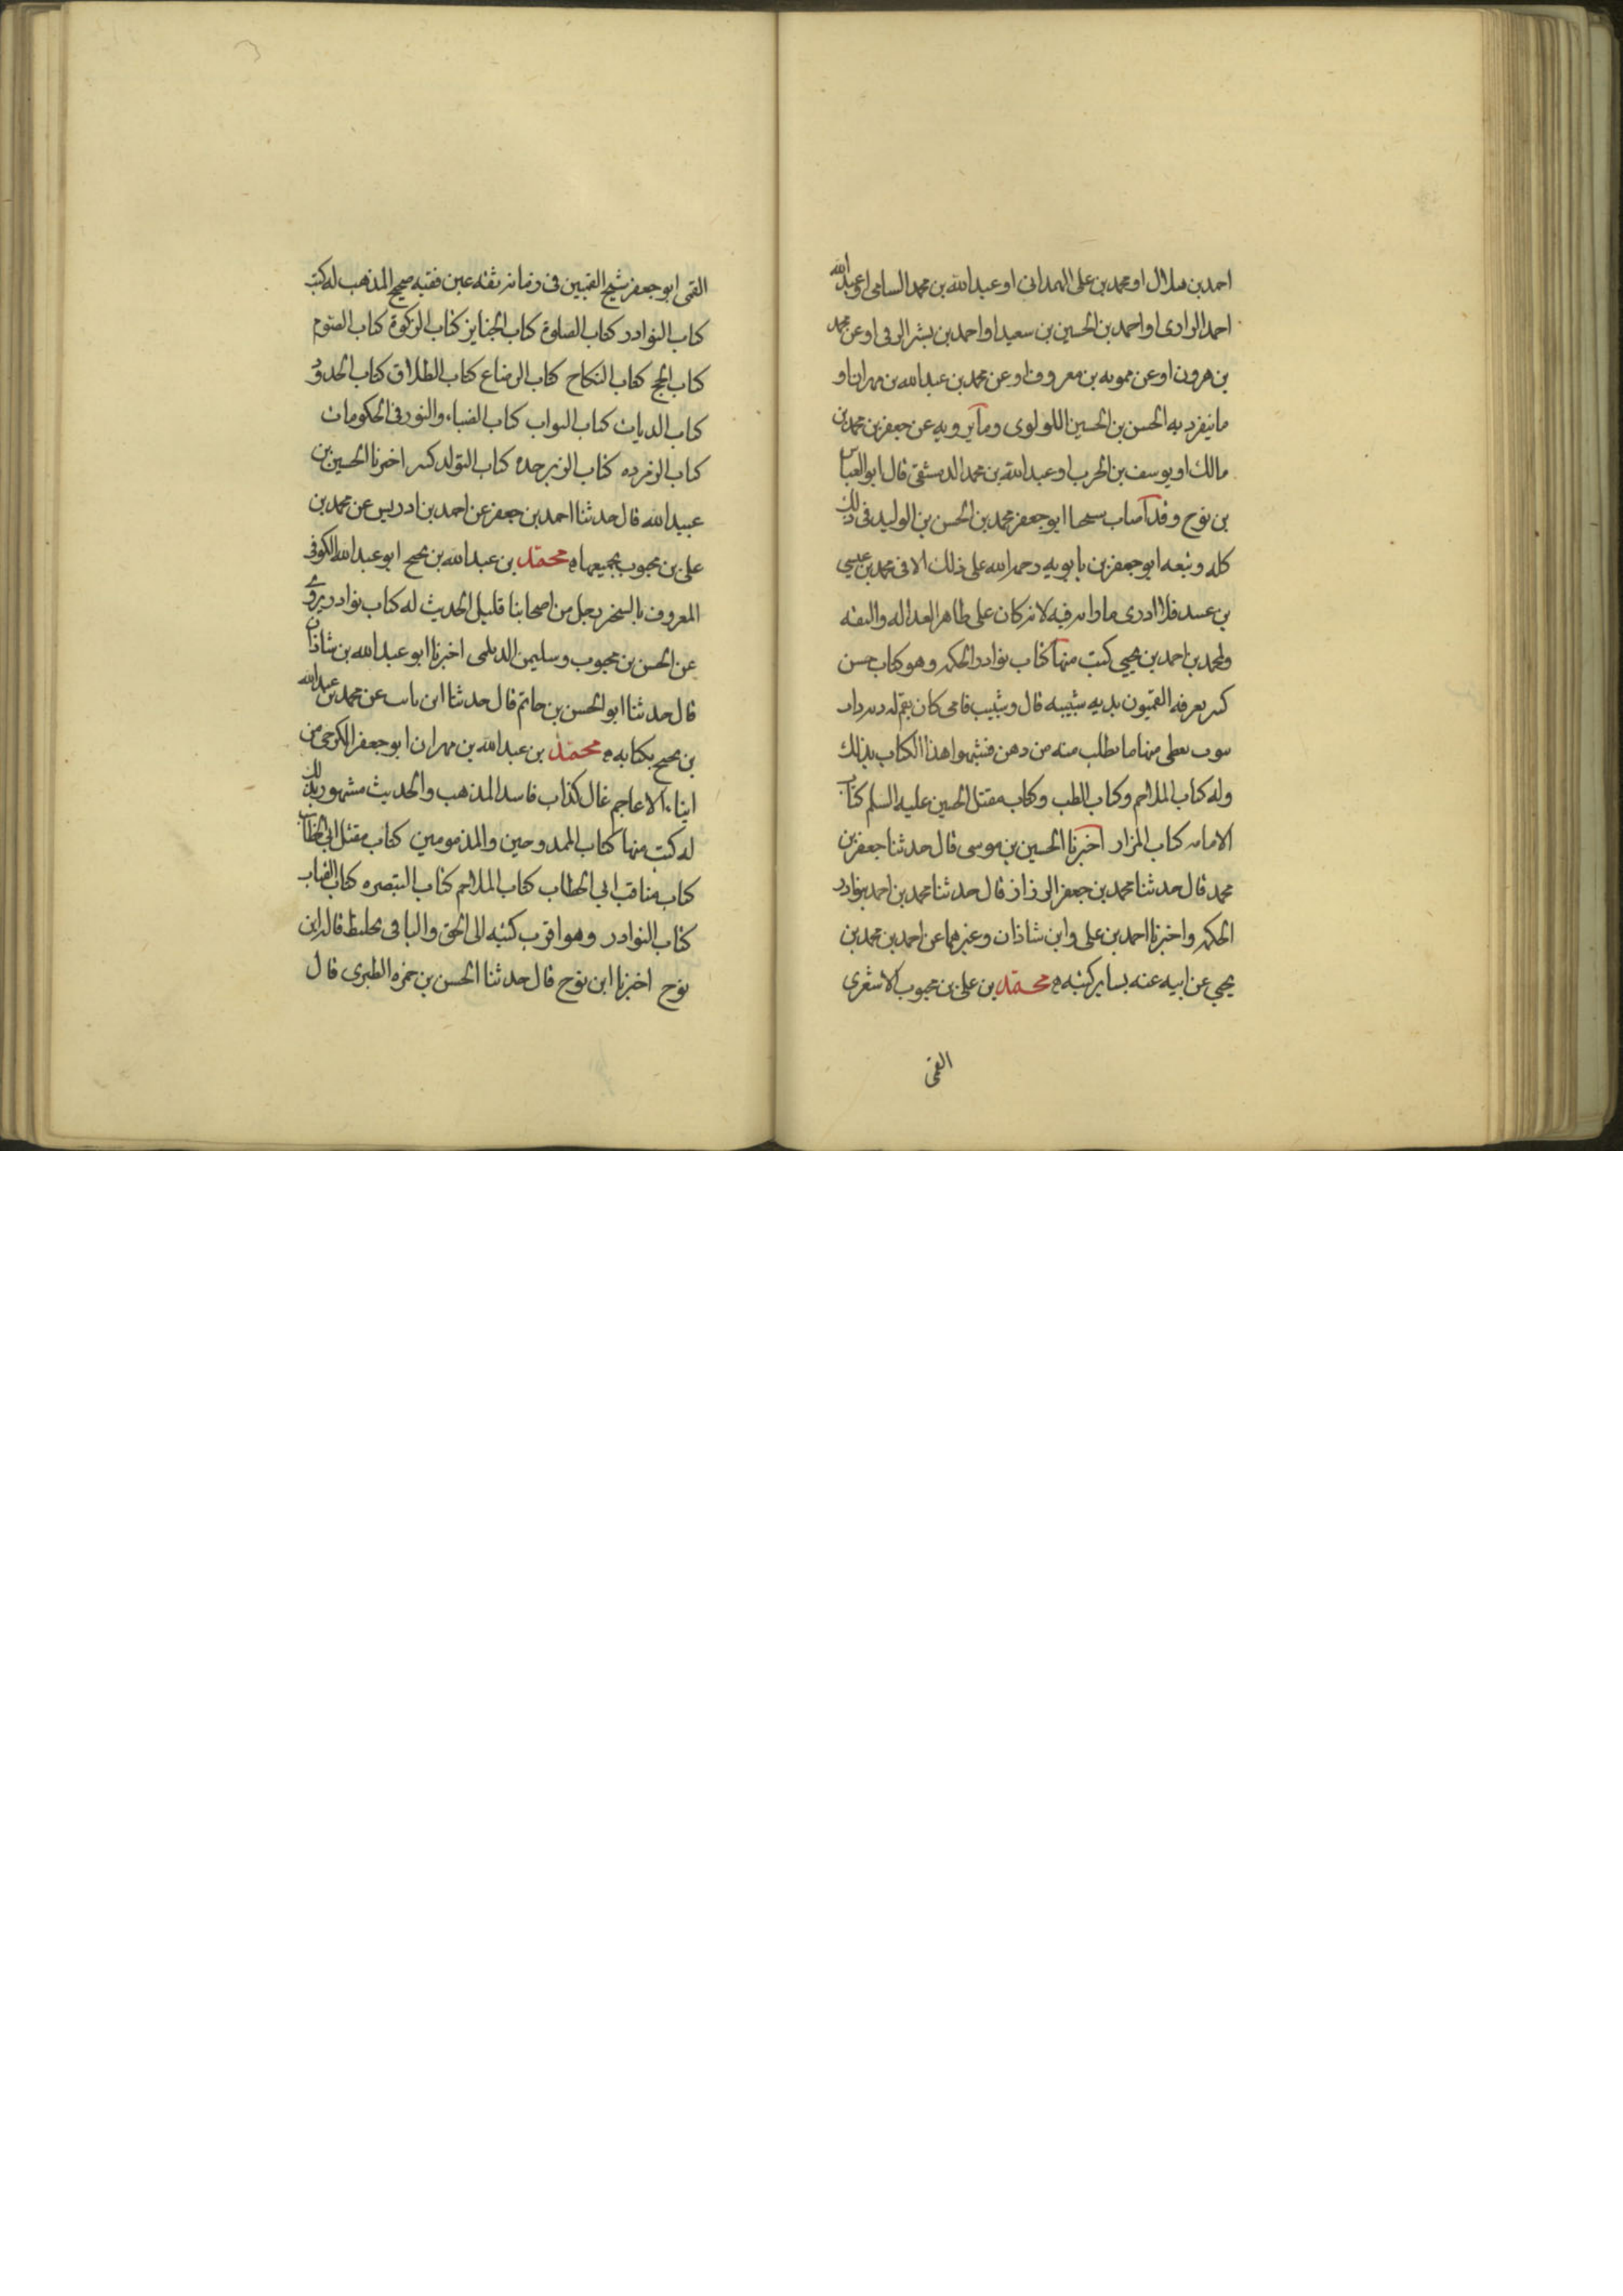 احمد بن هلال او محمد بن على الهمدانى او عبد الله بن محمد السامى او عبد الله
احمد الرازى او احمد بن الحسين بن سعيد او احمد بن بشر الرقى او عن محمد
بن هرون او عن ممويه بن معروف او عن محمد بن عبد الله بن مهران او
ما تيفرد به الحسن بن الحسين اللولوى وما يرويه عن جعفر بن محمد بن
مالك او يوسف بن الحرب او عبد الله بن محمد الدمشقى قال ابو العباس
بن نوح وقد اصاب سحا ابو جعفر محمد بن الحسن بن الوليد فى ذلك
كله وتبعه ابو جعفر بن بابويه رحمه الله على ذلك الا فى محمد بن عيسى
بن عسد فلا ادرى ما رابه فيه لانه كان على ظاهر العداله والثقه
ولمحمد بن احمد بن يحيى كتب منها كتاب نوادر الحكمه وهو كتاب حسن
كبير يعرفه القميون بدبه شبيبه قال وشبيب فامى كان بقم له دبه ذات
بيوب يعطى منها ما يطلب منه من دهن فشبهوا هذا الكتاب بذلك
وله كتاب الملاحم وكتاب الطب وكتاب مقتل الحسين عليه السلم كتاب
الامامه كتاب المزار اخبرنا الحسين بن موسى قال حدثنا جعفر بن
محمد قال حدثنا محمد بن جعفر الرزاز قال حدثنا محمد بن احمد بنوادر
الحكمه واخبرنا احمد بن على وابن شاذان وغيرهما عن احمد بن محمد بن
يحيى عن ابيه عنه بساير كتبه ه محمد بن على بن محبوب الاشعرى
القمى
القمى ابو جعفر شيخ القميين فى زمانه ثقه عين فقيه صحيح المذهب له كتب
كتاب النوادر كتاب الصلوة كتاب الجنايز كتاب الزكوة كتاب الصوم
كتاب الحج كتاب النكاح كتاب الرضاع كتاب الطلاق كتاب الحدود
كتاب الديات كتاب الثواب كتاب الضياء والنور فى الحكومات
كتاب الزمرده كتاب الزبرجده كتاب التولد كبير اخبرنا الحسين بن
عبيد الله قال حدثنا احمد بن جعفر عن احمد بن ادريس عن محمد بن
على بن محبوب بجميعها ه محمد بن عبد الله بن نجيح ابو عبد الله الكوفى
المعروف بالسخر رجل من اصحابنا قليل الحديث له كتاب نوادر يروى
عن الحسن بن محبوب وسليمن الديلمى اخبرنا ابو عبد الله بن شاذان
قال حدثنا ابو الحسن بن حاتم قال حدثنا ابن ثابت عن محمد بن عبد الله
بن نجيح بكتابه ه محمد بن عبد الله بن مهران ابو جعفر الكرخى من
ابناء الاعاجم غال كذاب فاسد المذهب والحديث مشهور بذلك
له كتب منها كتاب الممدوحين والمذمومين كتاب مقتل ابى الخطاب
كتاب مناقب ابى الخطاب كتاب الملاحم كتاب التبصره كتاب القباب
كتاب النوادر وهو اقرب كتبه الى الحق والباقى تخليط قاله ابن
نوح اخبرنا ابن نوح قال حدثنا الحسن بن حمزه الطبرى قال